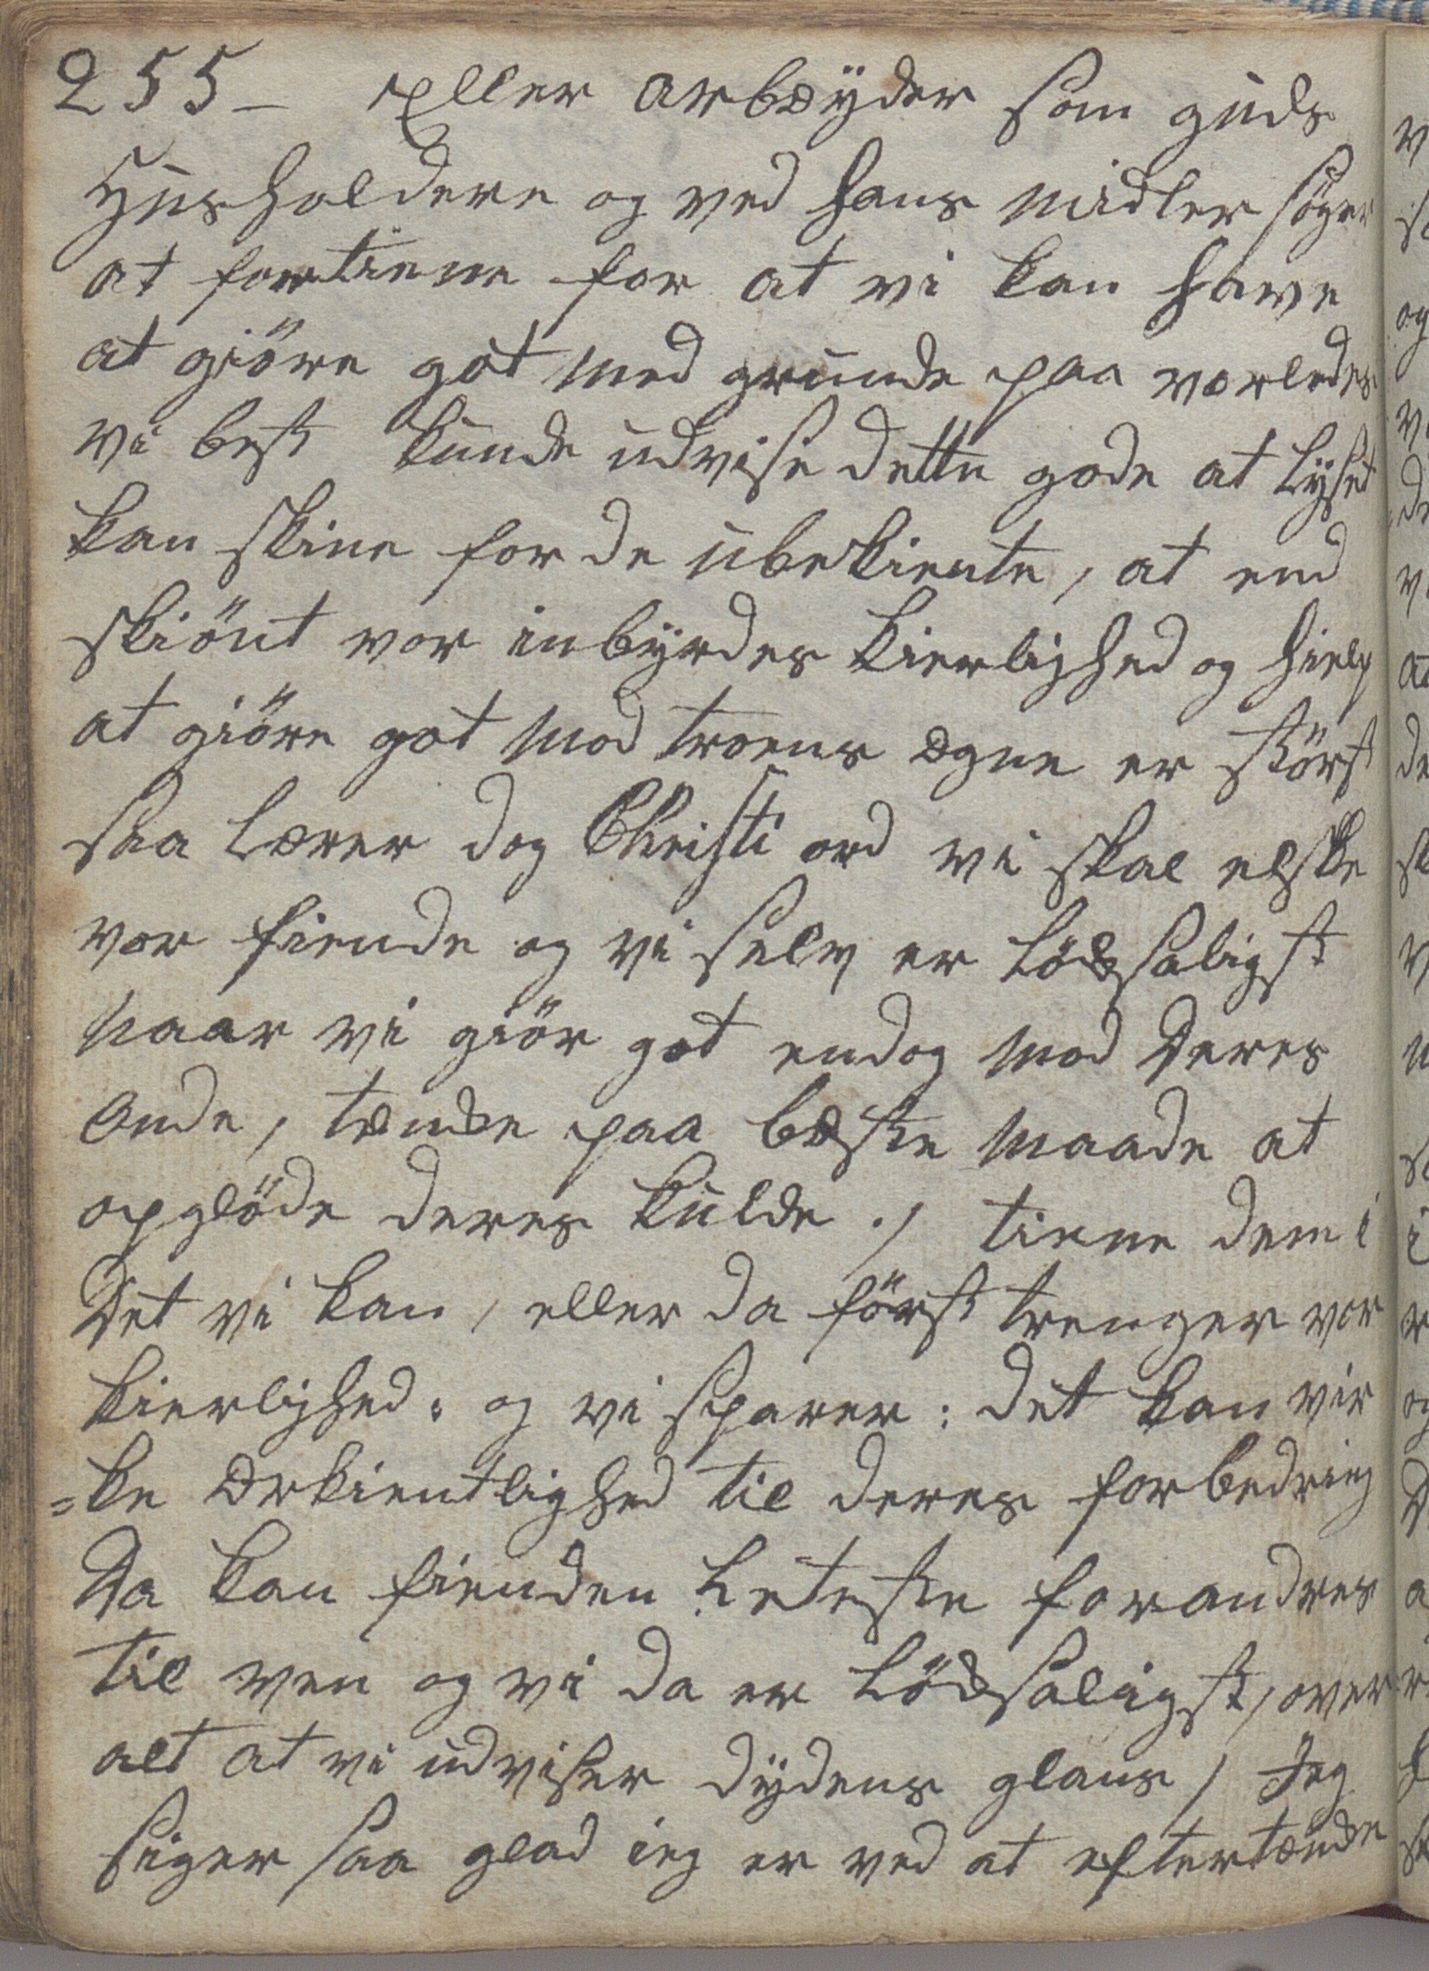 255 - Eller arbæyder som guds
Husholdere og ved hans midler søger
at fortiene for at vi kan have
at giöre got med grunde paa værledes
vi best kunde udvise dette gode at Lyset
kan skine for de ubekiente, at end
skiönt vor inbyrdes kierlighed og hielp
at giöre got mod troens egne er störst
saa Lærer dog Christi ord vi skal elske
vor fiende og vi selv er Lödsaligst
naar vi giör got endog mod deres
onde, tænke paa bæste maade at
opglöde deres kulde ., tiene dem i
Det vi kan, eller da först trenger vor
kierlighed: og vi sparer: det kan vir
=ke Erkientlighed til deres forbedring
Da kan fienden Leteste forandres
til ven og vi da er Lödsaligst, over
alt at vi udviser dydens glans, Jeg
siger saa glad ieg er ved at eftertænke